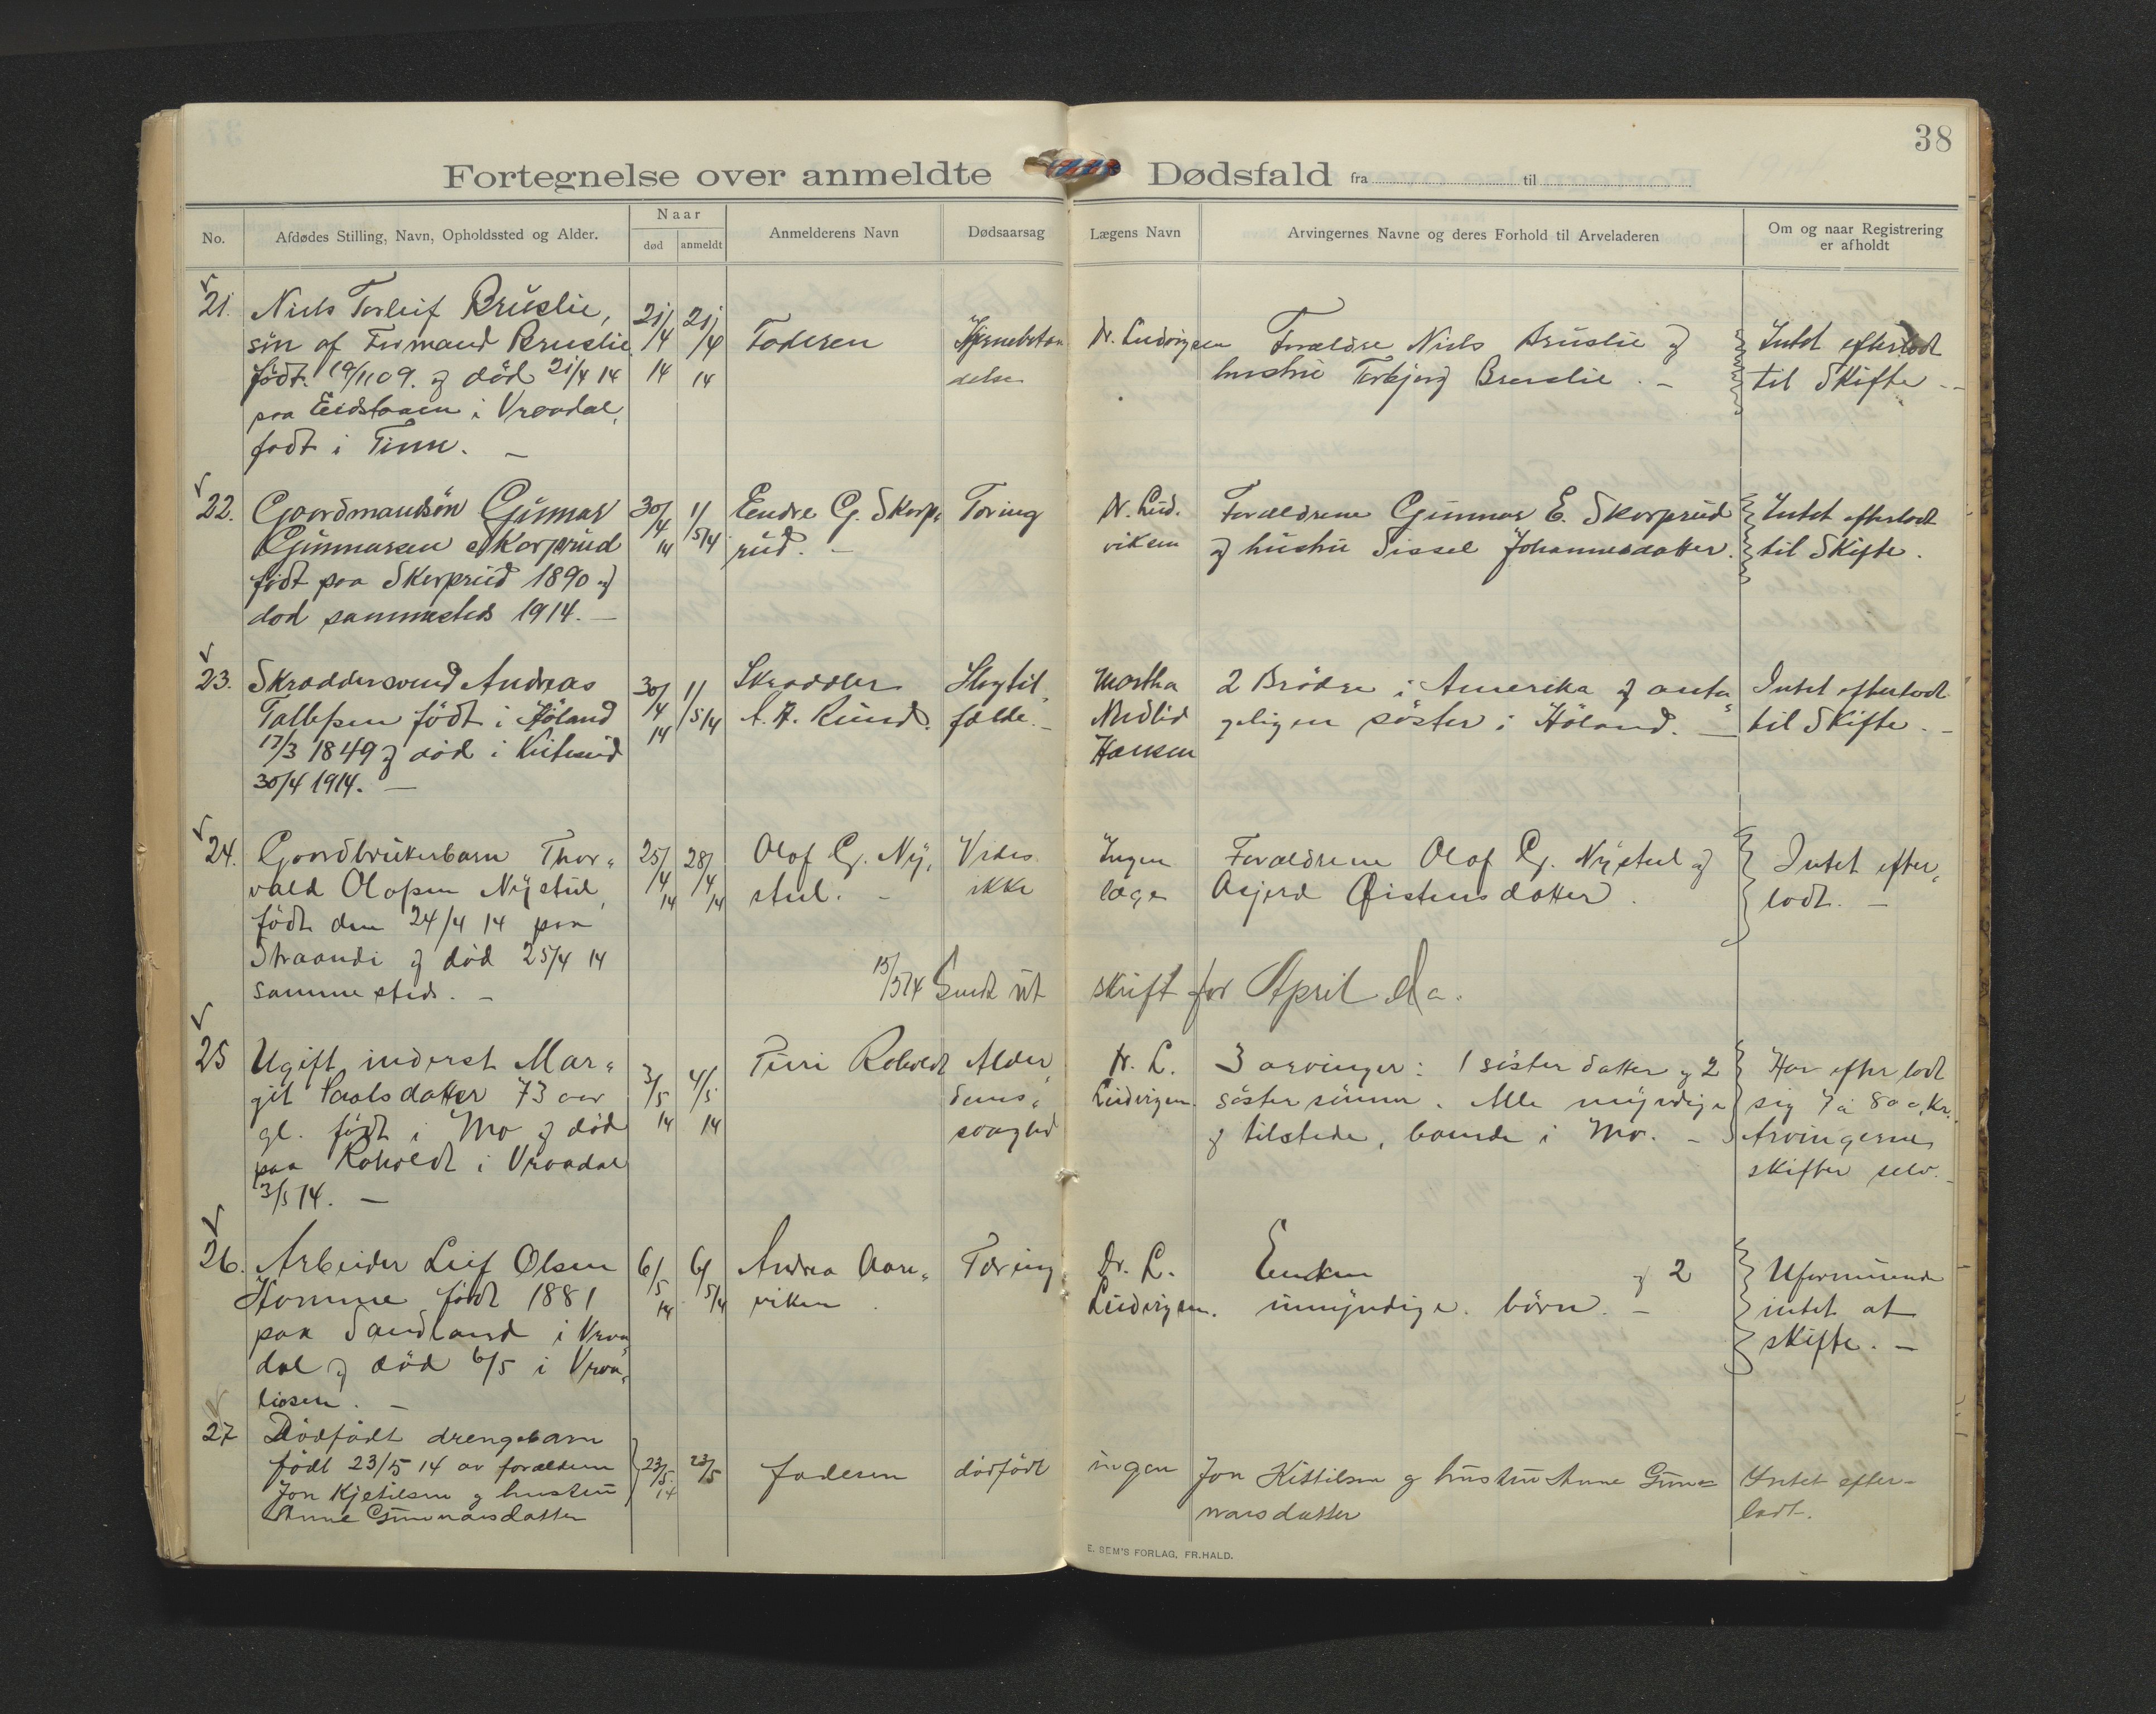 38
Fortegnelse over anmeldte Dødsfald fra til
No.
Afdødes Stilling, Navn, Opholdssted og Alder.
Naar
død
anmeldt
Anmelderens Navn
Dødsaarsag
Lægens Navn
Arvingernes Navne og deres Forhold til Arveladeren
Om og naar Registrering
er afholdt
21.
Niels Torleif Bruslie,
søn af Formand Bruslie
født 19/11 09. og død 21/4 14
paa Eidstaaen i Vraadal,
født i Tinn. -
21/4 14
21/4 14
Faderen
Hjernebetæn
delse
Dr. Ludvigsen
Forældre Niels Bruslie og
hustru Torbjørg Bruslie. -
Intet efterladt
til Skifte -
22.
Gaardmandsøn Gunnar
Gunnarsen Skorprud
født paa Skorprud 1890 og
død sammesteds 1914. -
30/4 14
1/5 14
Endre G. Skorp„
rud. -
Tæring
Dr. Lud.
viksen
Forældrene Gunnar E. Skorprud
og hustru Sissel Johannesdatter.
Intet efterladt
til Skifte.
23.
Skræddersvend Andreas
Tallefsen født i Høland
17/3 1849 og død i Kviteseid
30/4 1914. -
30/4 14
1/5 14
Skrædder
A. A. Rund.
Slagtil„
fælde. -
Martha
Hansen
2 Brødre i Amerika og anta„
geligen søster i Høland. -
Intet efterladt
til Skifte. -
24.
Gaardbrukerbarn Thor„
vald Olafsen Nystul,
født den 24/4 14 paa
Straandi og død 25/4 14
sammesteds. -
25/4 14
28/4 14
Olaf G. Ny„
stul. -
Vides
ikke
Ingen
læge
Forældrene Olaf G. Nystul og
Asjerd Øistensdatter.
Intet efter„
ladt. -
15/5 14 Sendt ut skrift for April
25
Ugift inderst Mar„
git Paalsdatter 73 aar
gl. født i Mo og død
paa Roholdt i Vraadal
3/5 14. -
3/5 14
4/5 14
Turi Roholdt
Alder
doms„
svaghed
Dr. L.
Ludvigsen.
3 arvinger: 1 søsterdatter og 2
søstersønner. Alle myndige
og tilstede, boende i Mo. -
Har efterladt
sig 7 à 800, Kr.
Arvingerne
skifter selv. -
26.
Arbeider Leif Olsen
Homme født 1881
paa Sandland i Vraa
dal og død 6/5 i Vraa„
liosen. -
6/5 14
6/5 14
Andrea Aare„
viken.
Tæring
Dr. L.
Ludvigsen.
Enken og 2
umyndige børn. -
Uformuende
intet at
skifte. -
27
Dødfødt drengebarn
født 23/5 14 av forældrene
Jon Kjetilsen og hustru
Anne Gunnarsdatter
23/5 14
23/5
faderen
dødfødt
ingen
Jon Kittilsen og hustru Anne Gun=
narsdatter
Intet efter-
ladt.
E. SEM'S FORLAG, FR.HALD.